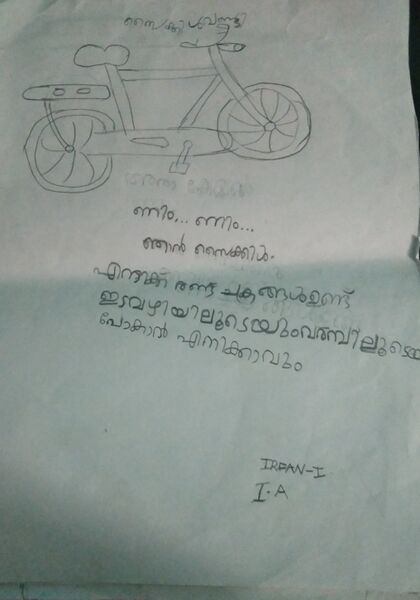 സൈക്കിൾവണ്ടി
ണിം... ണിം...
ഞാൻ സൈക്കിൾ.
എനിക്ക് രണ്ടു ചക്രങ്ങൾഉണ്ട്
ഇടവഴിയിലൂടെയുംവരമ്പിലൂടെയ
പോകാൻ എനിക്കാവും
IRFAN-I
I.A